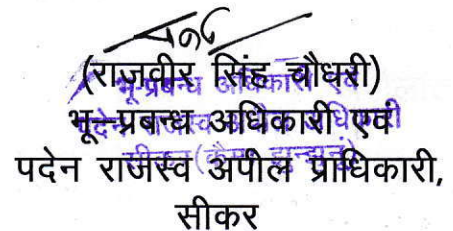 (राजवीर सिंह चौधरी)
भू-प्रबन्ध अधिकारी एवं
पदेन राजस्व अपील प्राधिकारी,
सीकर
भू-प्रबन्ध अधिकारी एवं
पदेन राजस्व अपील अधिकारी
सीकर (कैम्प झुन्झुनूं)